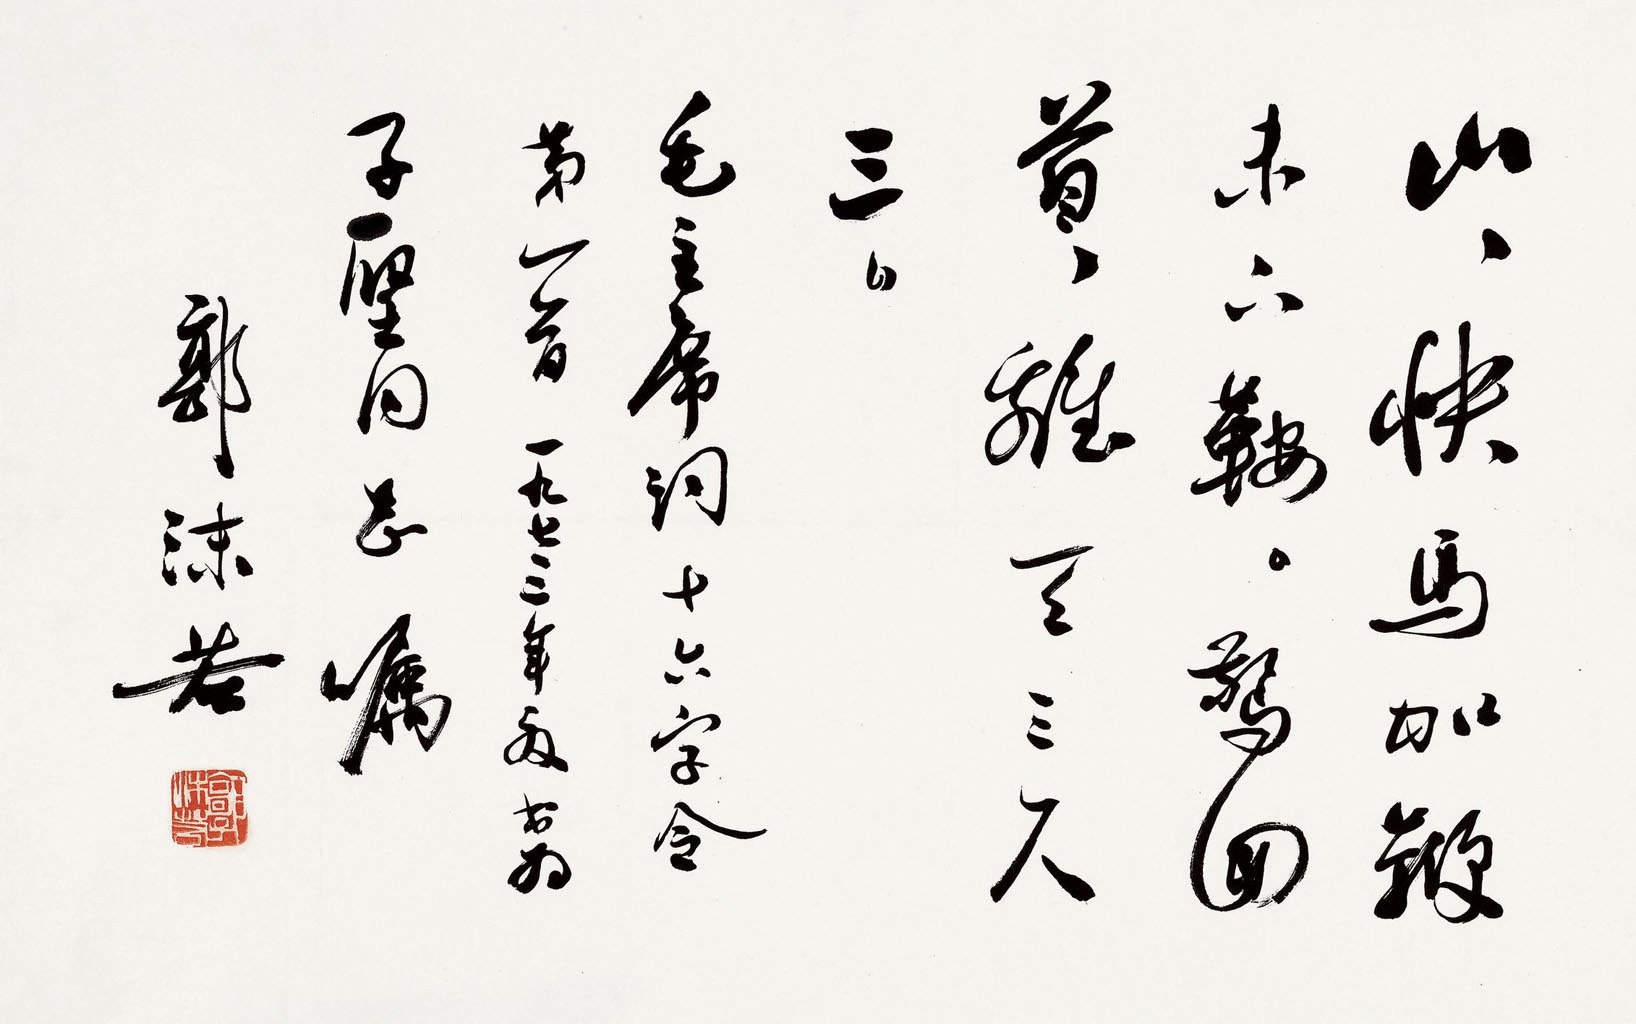 山、快馬加鞭
未下鞍。驚回
首、離天三尺
三。
毛主席词十六字令
第一首 一九七三年夏 书为
子堅同志嘱
郭沫若
郭沫若